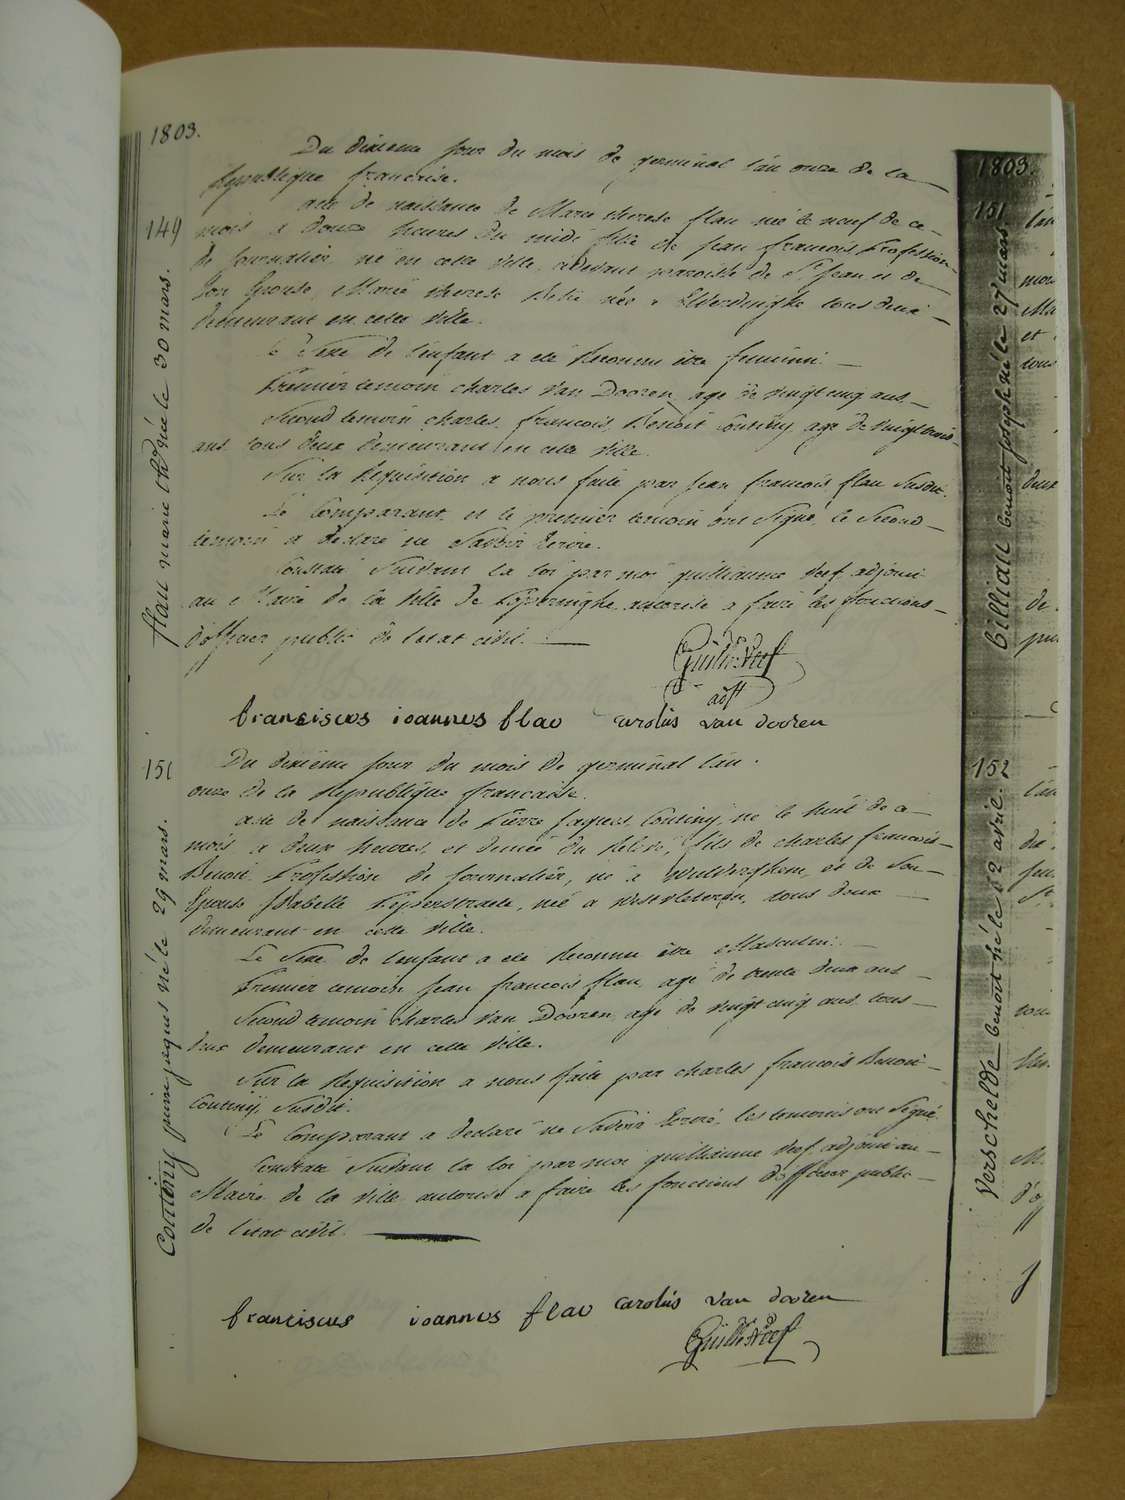 1803.
Du dixieme jour du mois de germinal l'an onze de la
Republique francaise.
149
acte de naissance de Marie therese flau née le neuf de ce
mois a douze heures du midi fille de jean francois Profession
de journalier né en cette ville, cidevant paroisse de St Jean et de
Son Epouse, Marie therese née a Elverdinghe tous deux
demeurant en cette ville.
le Sexe de l'enfant a eté Reconnu être feminin.
Premier temoin charles Van Dooren, agé de vingt cinq ans
Second temoin charles francois Benoit Coutiny agé de vingt trois
ans tous deux demeurant en cette ville.
Sur la Requisition a nous faite par jean francois flau Susdit.
Le Comparant et le premier temoin ont Signé, le Second
temoin a declaré ne Savoir Ecrire.
Constaté Suivant la loi par moi guilliaume Reef adjoint
au Maire de la Ville de Poperinghe autorisé a faire les fonctions
d'officier public de l'etat civil.
Guill: Reef
adjt
franciscus ioannes flau carolus van dooren
flau marie thse née le 30 mars.
151
Du dixieme jour du mois de germinal l'an
onze de la Republique francaise.
acte de naissance de Pierre jaques Coutiny, né le huit de ce
mois a deux heures et demie du Relevé, fils de charles francois
Benoit Profession de journalier, né a Wulveringhem et de Son
Epouse Isabelle Pyperstraete, née a Westvleteren, tous deux
demeurant en cette ville.
Le Sexe de l'enfant a eté Reconnu être Masculin.
Premier temoin jean francois flau, agé de trente deux ans
Second temoin charles Van Dooren, agé de vingt cinq ans tous
deux demeurant en cette ville.
Sur la Requisition a nous faite par charles francois Benoit
Coutiny, Susdit.
Le Comparant a declaré ne Savoir Ecrire, les temoins ont Signé.
Constaté Suivant la loi par moi guilliaume Reef adjoint au
Maire de la Ville autorisé a faire les fonctions d'officier public
de l'etat civil.
franciscus ioannes flau carolus van dooren
Guill: Reef
Coutiny pierre jaques né le 29 mars.
1803.
151
billiau benoit joseph né le 27 mars
152
Verschelde benoit né le 2 avril.